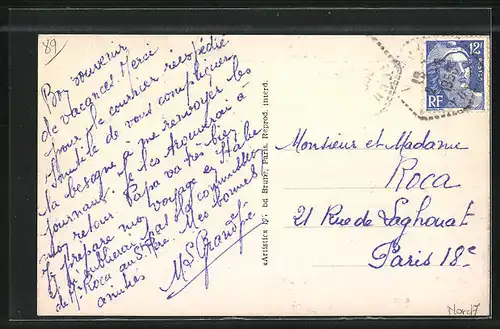 89
Bon souvenir
de vacances. Merci
pour le courrier réexpédié
Inutile de vous compliquer
la besogne à me renvoyer les
journaux. Je les trouverai à
mon retour. Papa va très bien
Je prépare mon voyage en Italie
et n'oublierai pas la commission
de M. Roca au St Père. Mes bonnes
amitiés
«Artistic» bd Brune, Paris. Reprod. interd.
12F
RF
Monsieur et Madame
Roca
21 Rue de Laghouat
Paris 18e
Nord 7